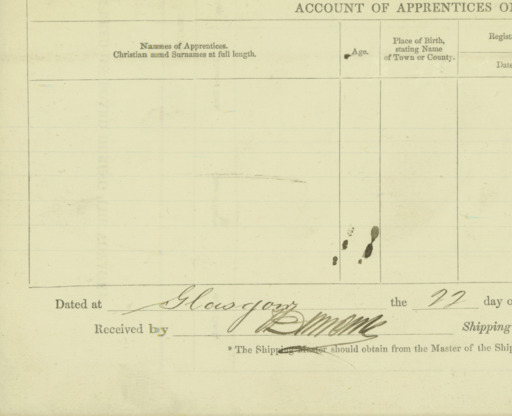 ACCOUNT OF APPRENTICES O
Names of Apprentices.
Christian and Surnames at full length.
Age.
Place of Birth,
stating Name
of Town or County.
Regist
Date
Dated at Glasgow the 22 day o
Received by Shipping
* The Shipping Master should obtain from the Master of the Ship